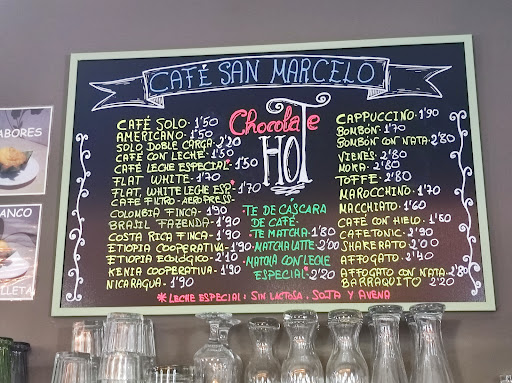 CAFÉ SAN MARCELO
CAFÉ SOLO· 1'50
AMERICANO· 1'50
SOLO DOBLE CARGA· 2'20
CAFÉ CON LECHE· 1'50
CAFÉ LECHE ESPECIAL* 1'50
FLAT WHITE· 1'70
FLAT WHITE LECHE ESP* 1'70
CAFÉ FILTRO - AEROPRESS-
COLOMBIA FINCA· 1'90
BRASIL FAZENDA· 1'90
COSTA RICA FINCA· 1'90
ETIOPIA COOPERATIVA· 1'90
ETIOPIA ECOLÓGICO· 2'10
KENIA COOPERATIVA· 1'90
NICARAGUA· 1'90
Chocolate
HOT
TE DE CÁSCARA
DE CAFÉ·
TE MATCHA· 1'80
MATCHA LATTE· 2'00
MATCHA CON LECHE
ESPECIAL* 2'20
CAPPUCCINO· 1'90
BOMBÓN· 1'70
BOMBÓN CON NATA· 2'80
VIENES· 2'80
MOKA· 2'80
TOFFE· 2'80
MAROCCHINO· 1'70
MACCHIATO· 1'60
CAFÉ CON HIELO· 1'50
CAFETONIC· 2'90
SHAKERATO· 2'00
AFFOGATO· 2'40
AFFOGATO CON NATA· 2'80
BARRAQUITO· 2'20
* LECHE ESPECIAL: SIN LACTOSA, SOJA Y AVENA
ABORES
ANCO
LLETA